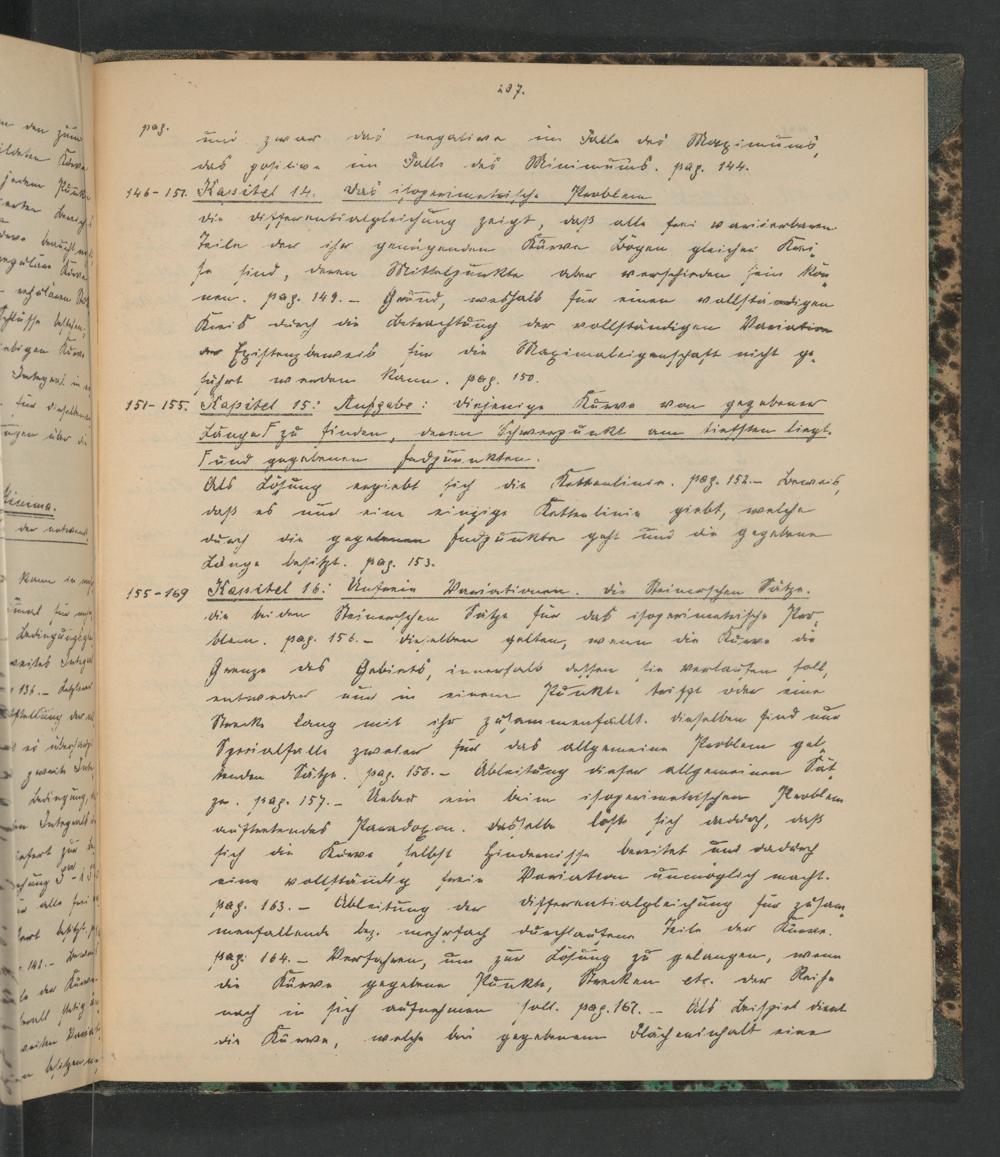 237.
pag.
und zwar das negative im Falle des Maximums,
das positive im Falle des Minimums. pag. 144.
146-151. Kapitel 14. Das isoperimetrische Problem
Die Differentialgleichung zeigt, daß alle frei variierbaren
Teile der ihr genügenden Kurve Bögen gleicher Krei-
se sind, deren Mittelpunkte aber verschieden sein kön-
nen. pag. 149. – Grund, weshalb für einen vollständigen
Kreis durch die Betrachtung der vollständigen Variation
der Existenzbeweis für die Maximaleigenschaft nicht ge-
führt werden kann. pag. 150.
151-155. Kapitel 15: Aufgabe: Diejenige Kurve von gegebener
Länge Γ zu finden, deren Schwerpunkt am tiefsten liegt.
Γ und gegebenen Endpunkten.
Als Lösung ergiebt sich die Kettenlinie. pag. 152. – Beweis,
daß es nur eine einzige Kettenlinie giebt, welche
durch die gegebenen Endpunkte geht und die gegebene
Länge besitzt. pag. 153.
155-169 Kapitel 16: Unfreie Variationen. Die Steinerschen Sätze.
Die beiden Steinerschen Sätze für das isoperimetrische Pro-
blem. pag. 156. – Dieselben gelten, wenn die Kurve die
Grenze des Gebiets, innerhalb dessen sie verlaufen soll,
entweder nur in einem Punkte trifft oder eine
Strecke lang mit ihr zusammenfällt. Dieselben sind nur
Spezialfälle zweier für das allgemeine Problem gel-
tenden Sätze. pag. 156. – Ableitung dieser allgemeinen Sät-
ze. pag. 157. – Ueber ein beim isoperimetrischen Problem
auftretendes Paradoxon. Dasselbe löst sich dadurch, daß
sich die Kurve selbst Hindernisse bereitet und dadurch
eine vollständig freie Variation unmöglich macht.
pag. 163. – Ableitung der Differentialgleichung für zusam-
menfallende bez. mehrfach durchlaufene Teile der Kurve.
pag. 164. – Verfahren, um zur Lösung zu gelangen, wenn
die Kurve gegebene Punkte, Strecken etc. der Reihe
nach in sich aufnehmen soll. pag. 167. – Als Beispiel dient
die Kurve, welche bei gegebenem Flächeninhalt eine